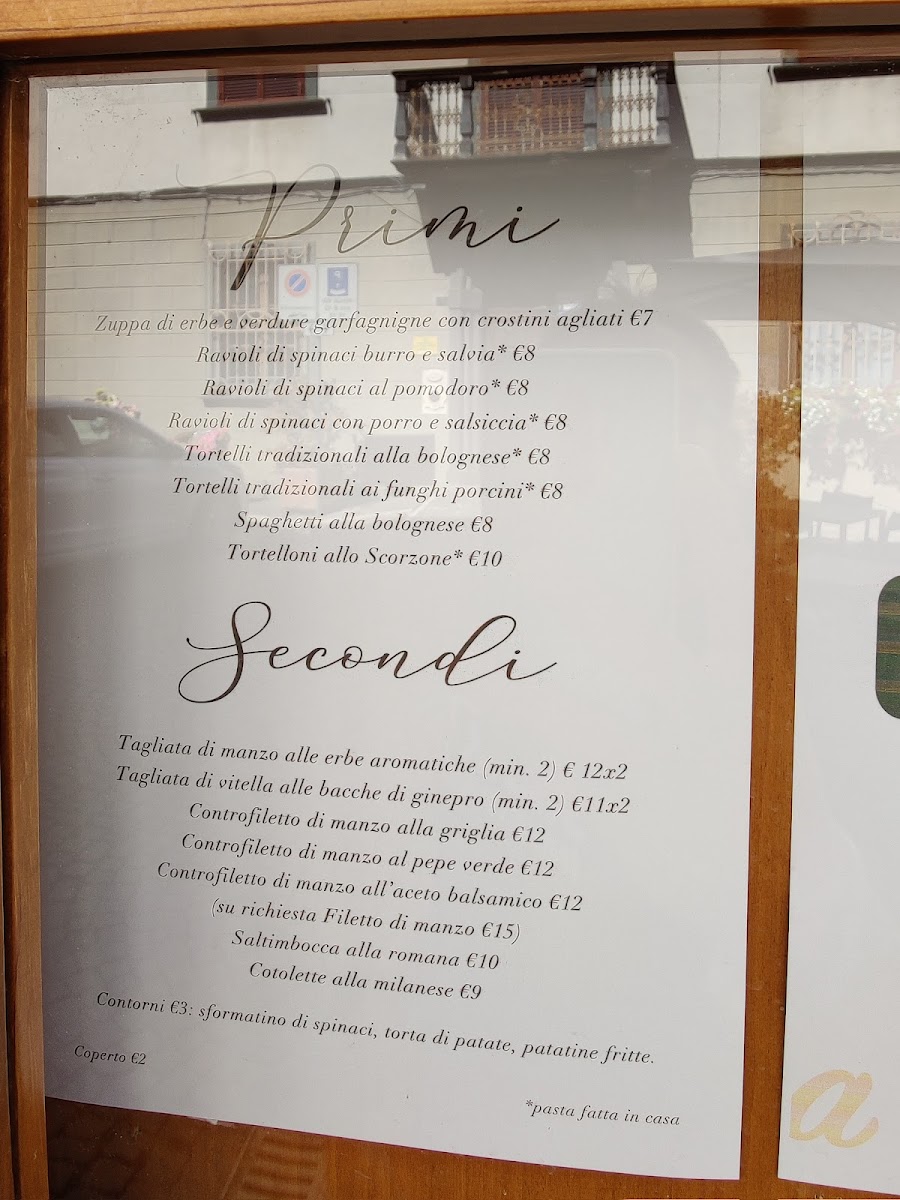 Primi
Zuppa di erbe e verdure garfagnigne con crostini agliati €7
Ravioli di spinaci burro e salvia* €8
Ravioli di spinaci al pomodoro* €8
Ravioli di spinaci con porro e salsiccia* €8
Tortelli tradizionali alla bolognese* €8
Tortelli tradizionali ai funghi porcini* €8
Spaghetti alla bolognese €8
Tortelloni allo Scorzone* €10
Secondi
Tagliata di manzo alle erbe aromatiche (min. 2) € 12x2
Tagliata di vitella alle bacche di ginepro (min. 2) €11x2
Controfiletto di manzo alla griglia €12
Controfiletto di manzo al pepe verde €12
Controfiletto di manzo all'aceto balsamico €12
(su richiesta Filetto di manzo €15)
Saltimbocca alla romana €10
Cotolette alla milanese €9
Contorni €3: sformatino di spinaci, torta di patate, patatine fritte.
Coperto €2
*pasta fatta in casa
a